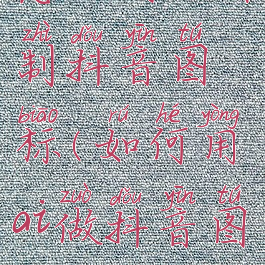 zhì dǒu yīn tú
制抖音图
biāo rú hé yòng
标(如何用
zuò dǒu yīn tú
ai做抖音图